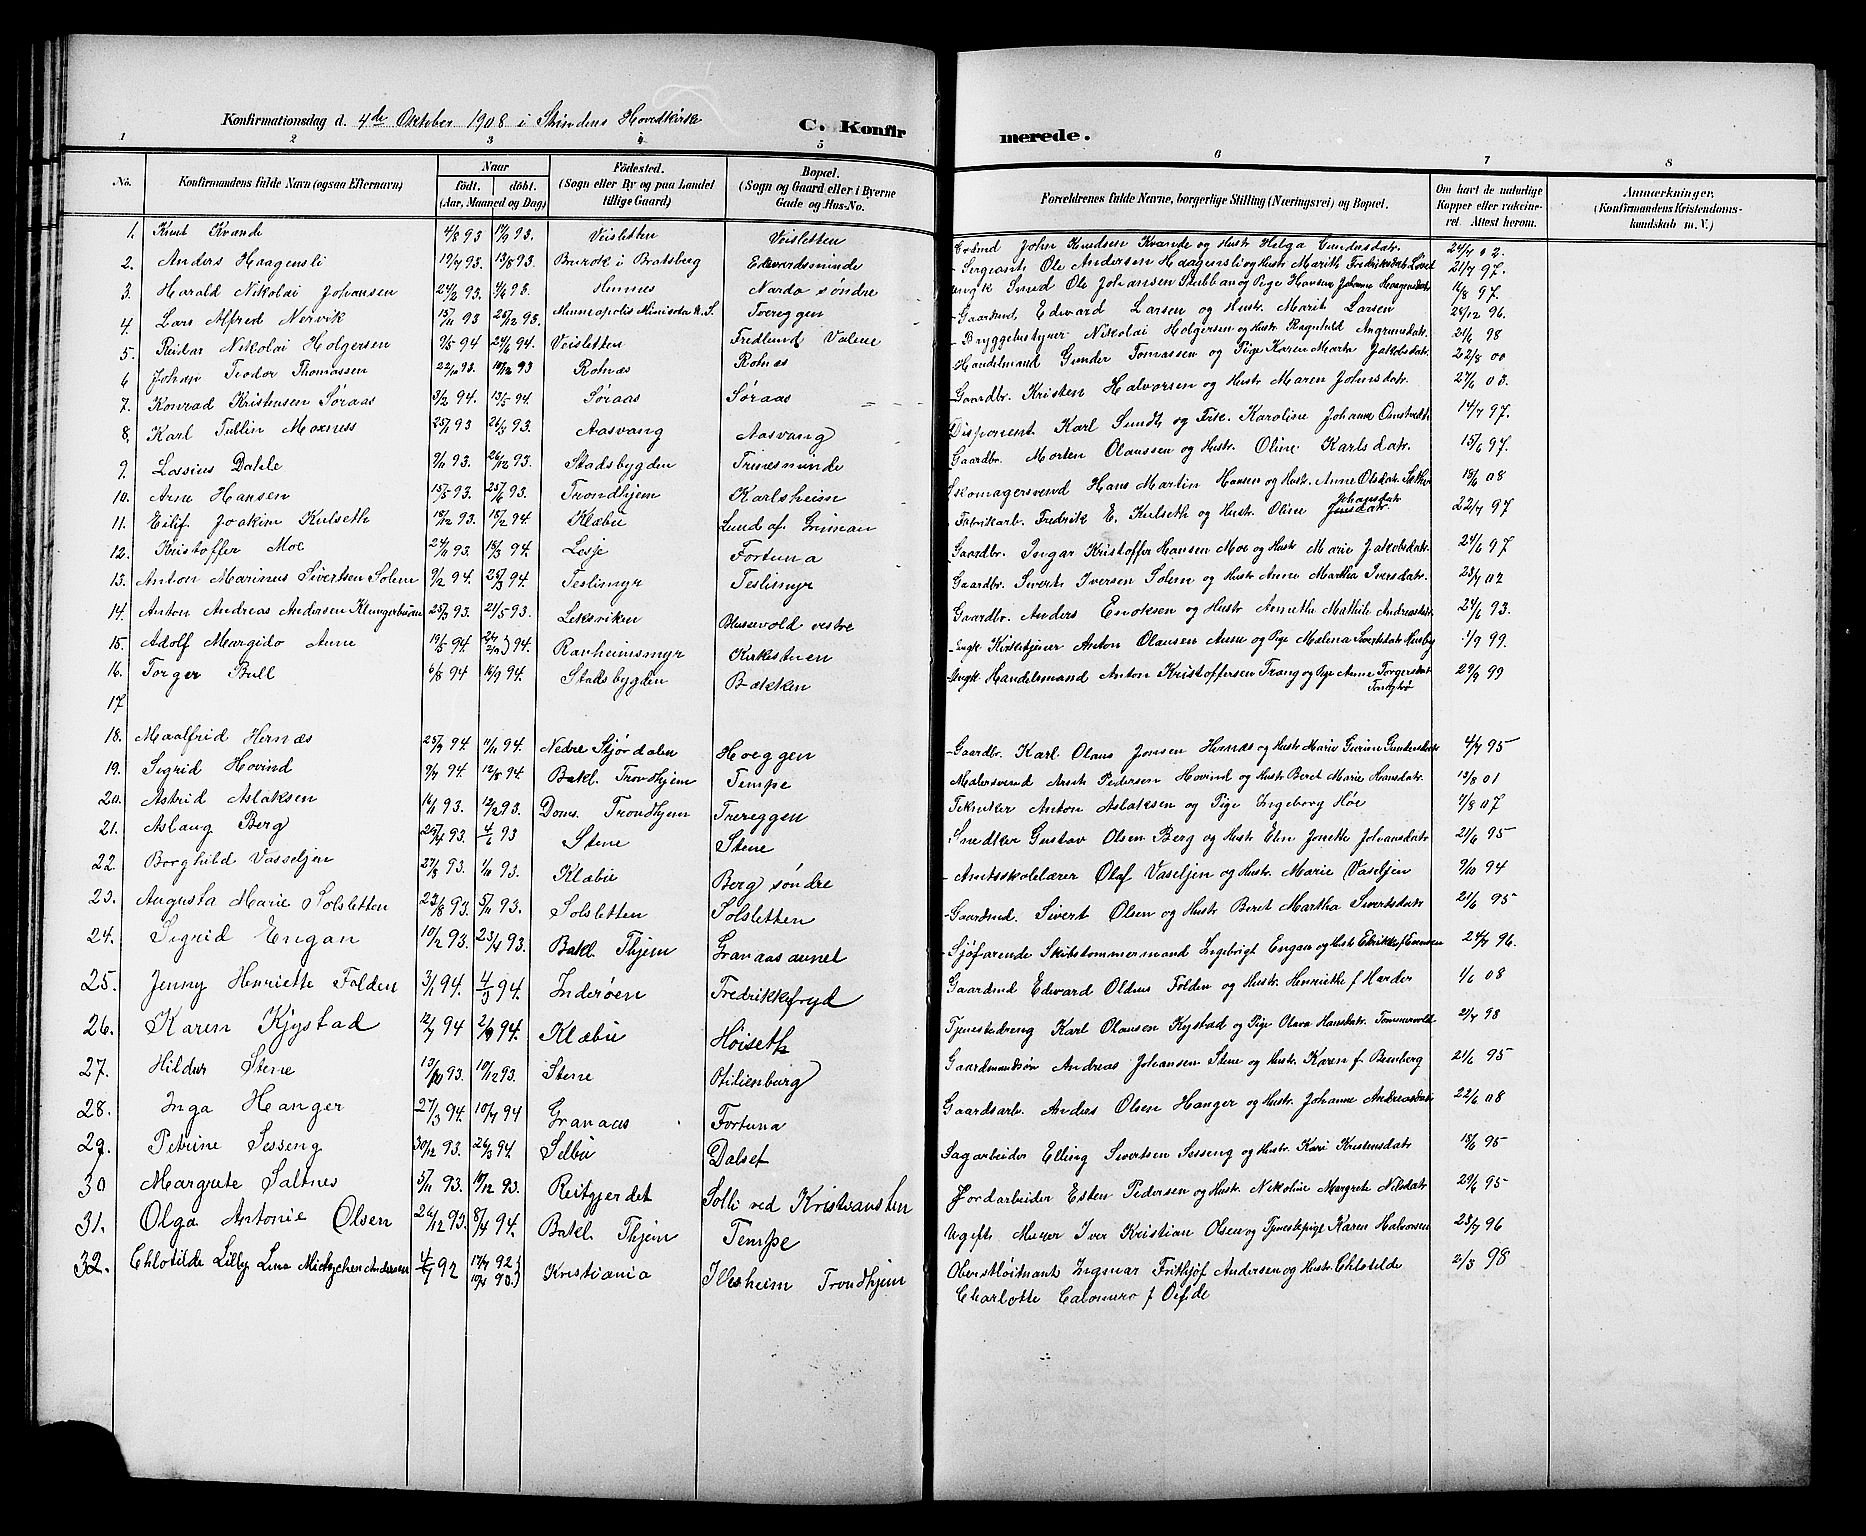 Konfirmationsdag d. 4de Oktober 1908 i Strindens Hovedkirke
C. Konfirmerede.
1 2 3 4 5 6 7 8
No. Konfirmandens fulde Navn (ogsaa Efternavn) Naar født. døbt. (Aar, Maaned og Dag) Fødested. (Sogn eller By og paa Landet tillige Gaard) Bopæl. (Sogn og Gaard eller i Byerne Gade og Hus-No. Forældrenes fulde Navne, borgerlige Stilling (Næringsvei) og Bopæl. Om havt de naturlige Kopper eller vakcineret Attest herom. Anmærkninger. (Konfirmandens Kristendomskundskab m. V.)
1. Knut Kvande 4/8 93 17/9 93. Veisletten Veisletten John Knudsen Kvande og Hustr Helga
2. Anders Haagensli 19/7 93. 13/8 93. Bratsberg Edvardsminde Sergeant Ole Andersen Haagensli og Hustr Marith Fredriksdatr 21/7 97.
3. Harald Nikolai Johansen 24/2 93. Nardo søndre Smed Ole Johansen og Pige Johanne Haagensdatr 16/8 97.
4. Lars Alfred Nervik 15/11 93 25/12 93. Minneapolis Tvereggen Gaardmd Edvard Larsen og Hustr Marit Larsen 28/12 96.
5. Reidar Nikolai Holgersen 9/5 94 24/6 94 Veisletten Fredlund Valene Bryggebestyrer Nikolai Holgersen og Hustr Ragnhild 21/6 98
6 Johan Teodor Thomassen 22/10 93. 10/12 93 Rotnæs Rotnæs Handelsmand Gunder Tomassen og Pige Karen Marta Jakobsdatr. 22/8 00
7. Konrad Kristensen Søraas 3/2 94. 13/5 94 Søraas Søraas Gaardbr. Kristen Halvorsen og Hustr Maren Johnsdatr. 27/6 03.
8. Karl Tullin Moxness 25/1 93 26/3 93. Aasvang Aasvang Disponent Karl Sundt og Frk. Karoline Johanne 14/7 97.
9. Lossius Dahle 9/11 93. 26/12 93. Stadsbygden Trinesminde Gaardbr. Morten Olaussen og Hustr. Oline Karlsdatr. 15/6 97.
10. Arne Hansen 15/5 93. 25/6 93. Trondhjem Karlsheim Skomagersvend Hans Martin Hansen og Hustr. Anne Olsdatr 15/6 08
11. Eilif Joakim Kulseth 18/12 93. 18/2 94. Klæbu Lund af Fabrikarb. Fredrik E. Kulseth og Hustr. Oline Johansdatr 22/7 97
12. Kristoffer Moe 24/11 93. 18/3 94. Lesje Fortuna Gaardbr. Ingar Kristoffer Hansen Moe og Hustr Marie Jakobsdatr. 24/6 97
13. Anton Marinus Sivertsen Solem 9/2 94. 25/3 94. Teslimyr Teslimyr Gaardbr. Sivert Iversen Solem og Hustr Anne Martha Iversdatr. 23/7 02
14. Anton Andreas Andersen 25/3 93. 21/5 93. Leksviken vestre Gaardbr. Anders Enoksen og Hustr Annette Mathilde Andreasdatr 24/6 93.
15. Adolf Margido Aune 19/5 94. 94. Ravheimsmyr Kirkestuen Kirketjener Anton Olausen Aune og Pige Malena Sivertsdatr 1/9 99.
16. Torger Bull 6/8 94 16/9 94. Stadsbygden Bækken Ungk Handelsmand Anton Kristoffersen Trang og Pige Anne Torgersdatr 29/9 99
17
18. Maalfrid Hernæs 25/9 94. 11/11 94. Nedre Stjørdalen Hoeggen Gaardbr. Karl Olaus Jonsen Hernæs og Hustr Marie 4/7 95
19. Sigrid Hovind 9/7 94. 12/8 94. Bakl. Trondhjem Tempe Malersvend Arnt Pedersen Hovind og Hustr Beret Marie Hansdatr. 13/8 01
20. Astrid Aslaksen 16/11 93. 12/12 93. Doms. Trondhjem Tvereggen Tekniker Anton Aslaksen og Pige Ingeborg Høe 7/8 07
21. Aslaug Berg 25/4 93. 4/6 93 Stene Stene Snedker Gustav Olsen Berg og Hustr Elen Jonette Johansdatr 21/6 95
22. Borghild Vasseljen 27/8 93. 1/10 93. Klæbu Berg søndre Amtsskolelærer Olaf Vaseljen og Hustr. Marie Vaseljen 9/10 94
23. Augusta Marie Solsletten 23/8 93. 5/11 93. Solsletten Solsletten Gaardmd. Sivert Olsen og Hustr Beret Martha Sivertsdatr 21/6 95
24. Sigrid Engan 10/2 93. 23/4 93. Bakl. Thjem Granaasaunet Sjøfarende Skibstømmermand Ingebrigt Engan og Hustr 24/7 96.
25. Jenny Henriette Folden 3/1 94. 4/3 94. Inderøen Fredrikkefryd Gaardmd Edvard Oldnes Folden og Hustr. Henriette f Harder 1/6 08
26. Karen Kjystad 12/7 94 2/9 94. Klæbu Høiseth Tjenestedreng Karl Olausen Kystad og Pige Olava Hansdatr. 21/7 98
27. Hildur Stene 13/10 93. 10/12 93. Stene Otilienburg Gaardmandssøn Andreas Johansen Stene og Hustr. Karen f. 21/6 95
28. Inga Hanger 27/3 94. 10/7 94 Granaas Fortuna Gaardsarb. Anders Olsen Hanger og Hustr. Johanne Andreasdatr 22/6 08
29. Petrine Sesseng 30/12 93. 26/3 94. Selbu Dalset Sagarbeider Elling Sivertsen Sesseng og Hustr Kari Kristensdatr 18/6 95
30 Margrete Saltnes 5/11 93. 10/12 93. Reitgjerdet Solli ved Kristiansten Jordarbeider Esten Pedersen og Hustr. Nikoline Margrete Nilsdatr 29/6 95
31. Olga Antonie Olsen 26/12 93. 8/4 94. Bakl. Thjem Tempe Ugift Murer Iver Kristian Olsen og Tjenestepige Karen Halvorsen 23/7 96
32. Chlotilde Lilly Lina Andersen 4/7 92 17/7 92 Kristiania Ilesheim Trondhjem Oberstløitnant Ingmar Frithjof Andersen og Hustr. Chlotilde 2/3 98
Charlotte